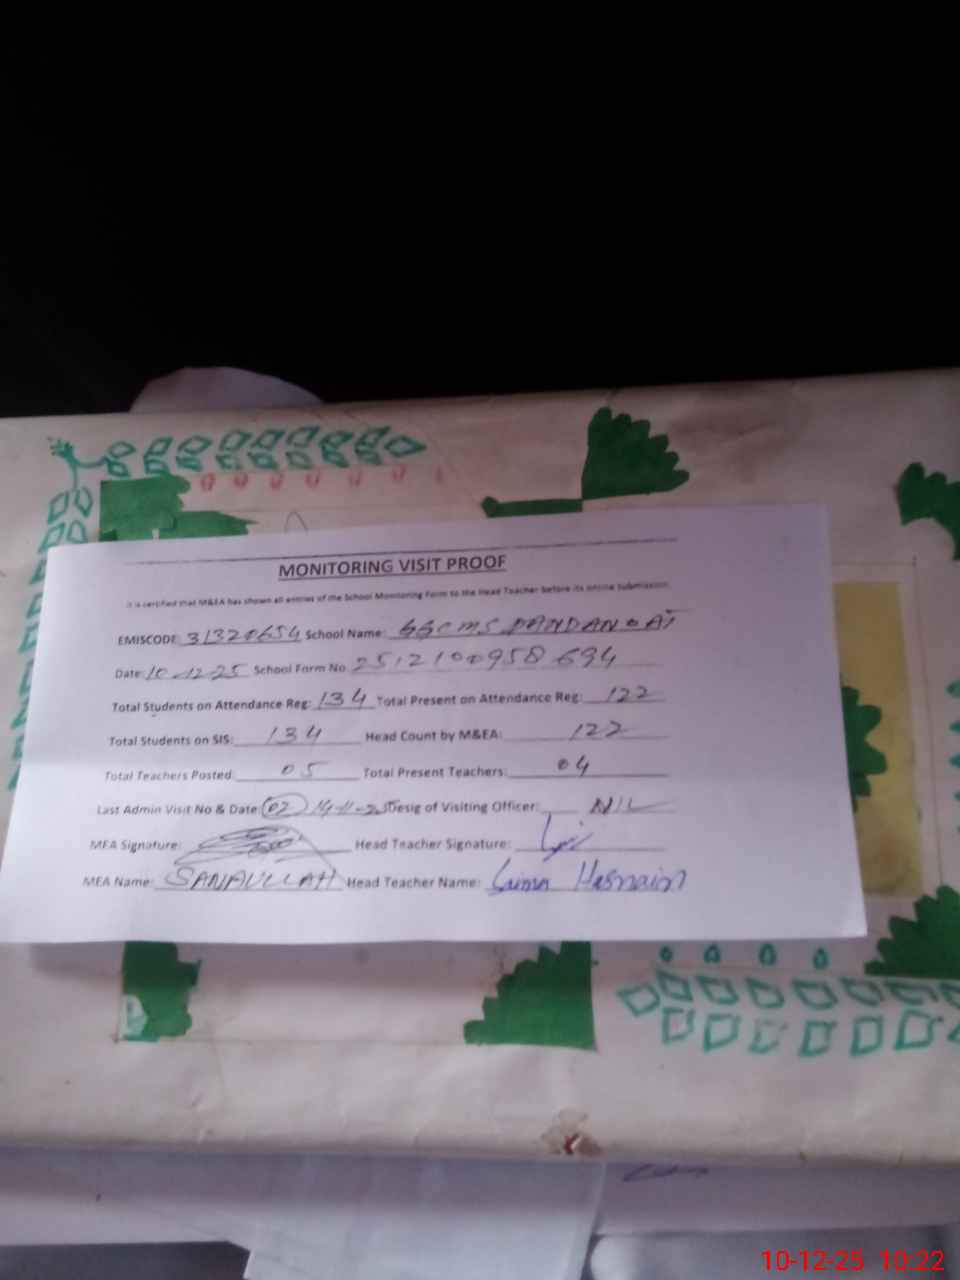 MONITORING VISIT PROOF
It is certified that M&EA has shown all entries of the School Monitoring Form to the Head Teacher before its online submission.
EMISCODE: 31320654 School Name: GGCMS DANDAN
Date: 10-12-25 School Form No. 2512100958694
Total Students on Attendance Reg: 134 Total Present on Attendance Reg: 122
Total Students on SIS: 134 Head Count by M&EA: 122
Total Teachers Posted: 05 Total Present Teachers: 04
Last Admin Visit No & Date: (02) 14-11-25 Desig of Visiting Officer: NIL
MEA Signature: Head Teacher Signature:
MEA Name: SANAULLAH Head Teacher Name: Hasnain
10-12-25 10:22